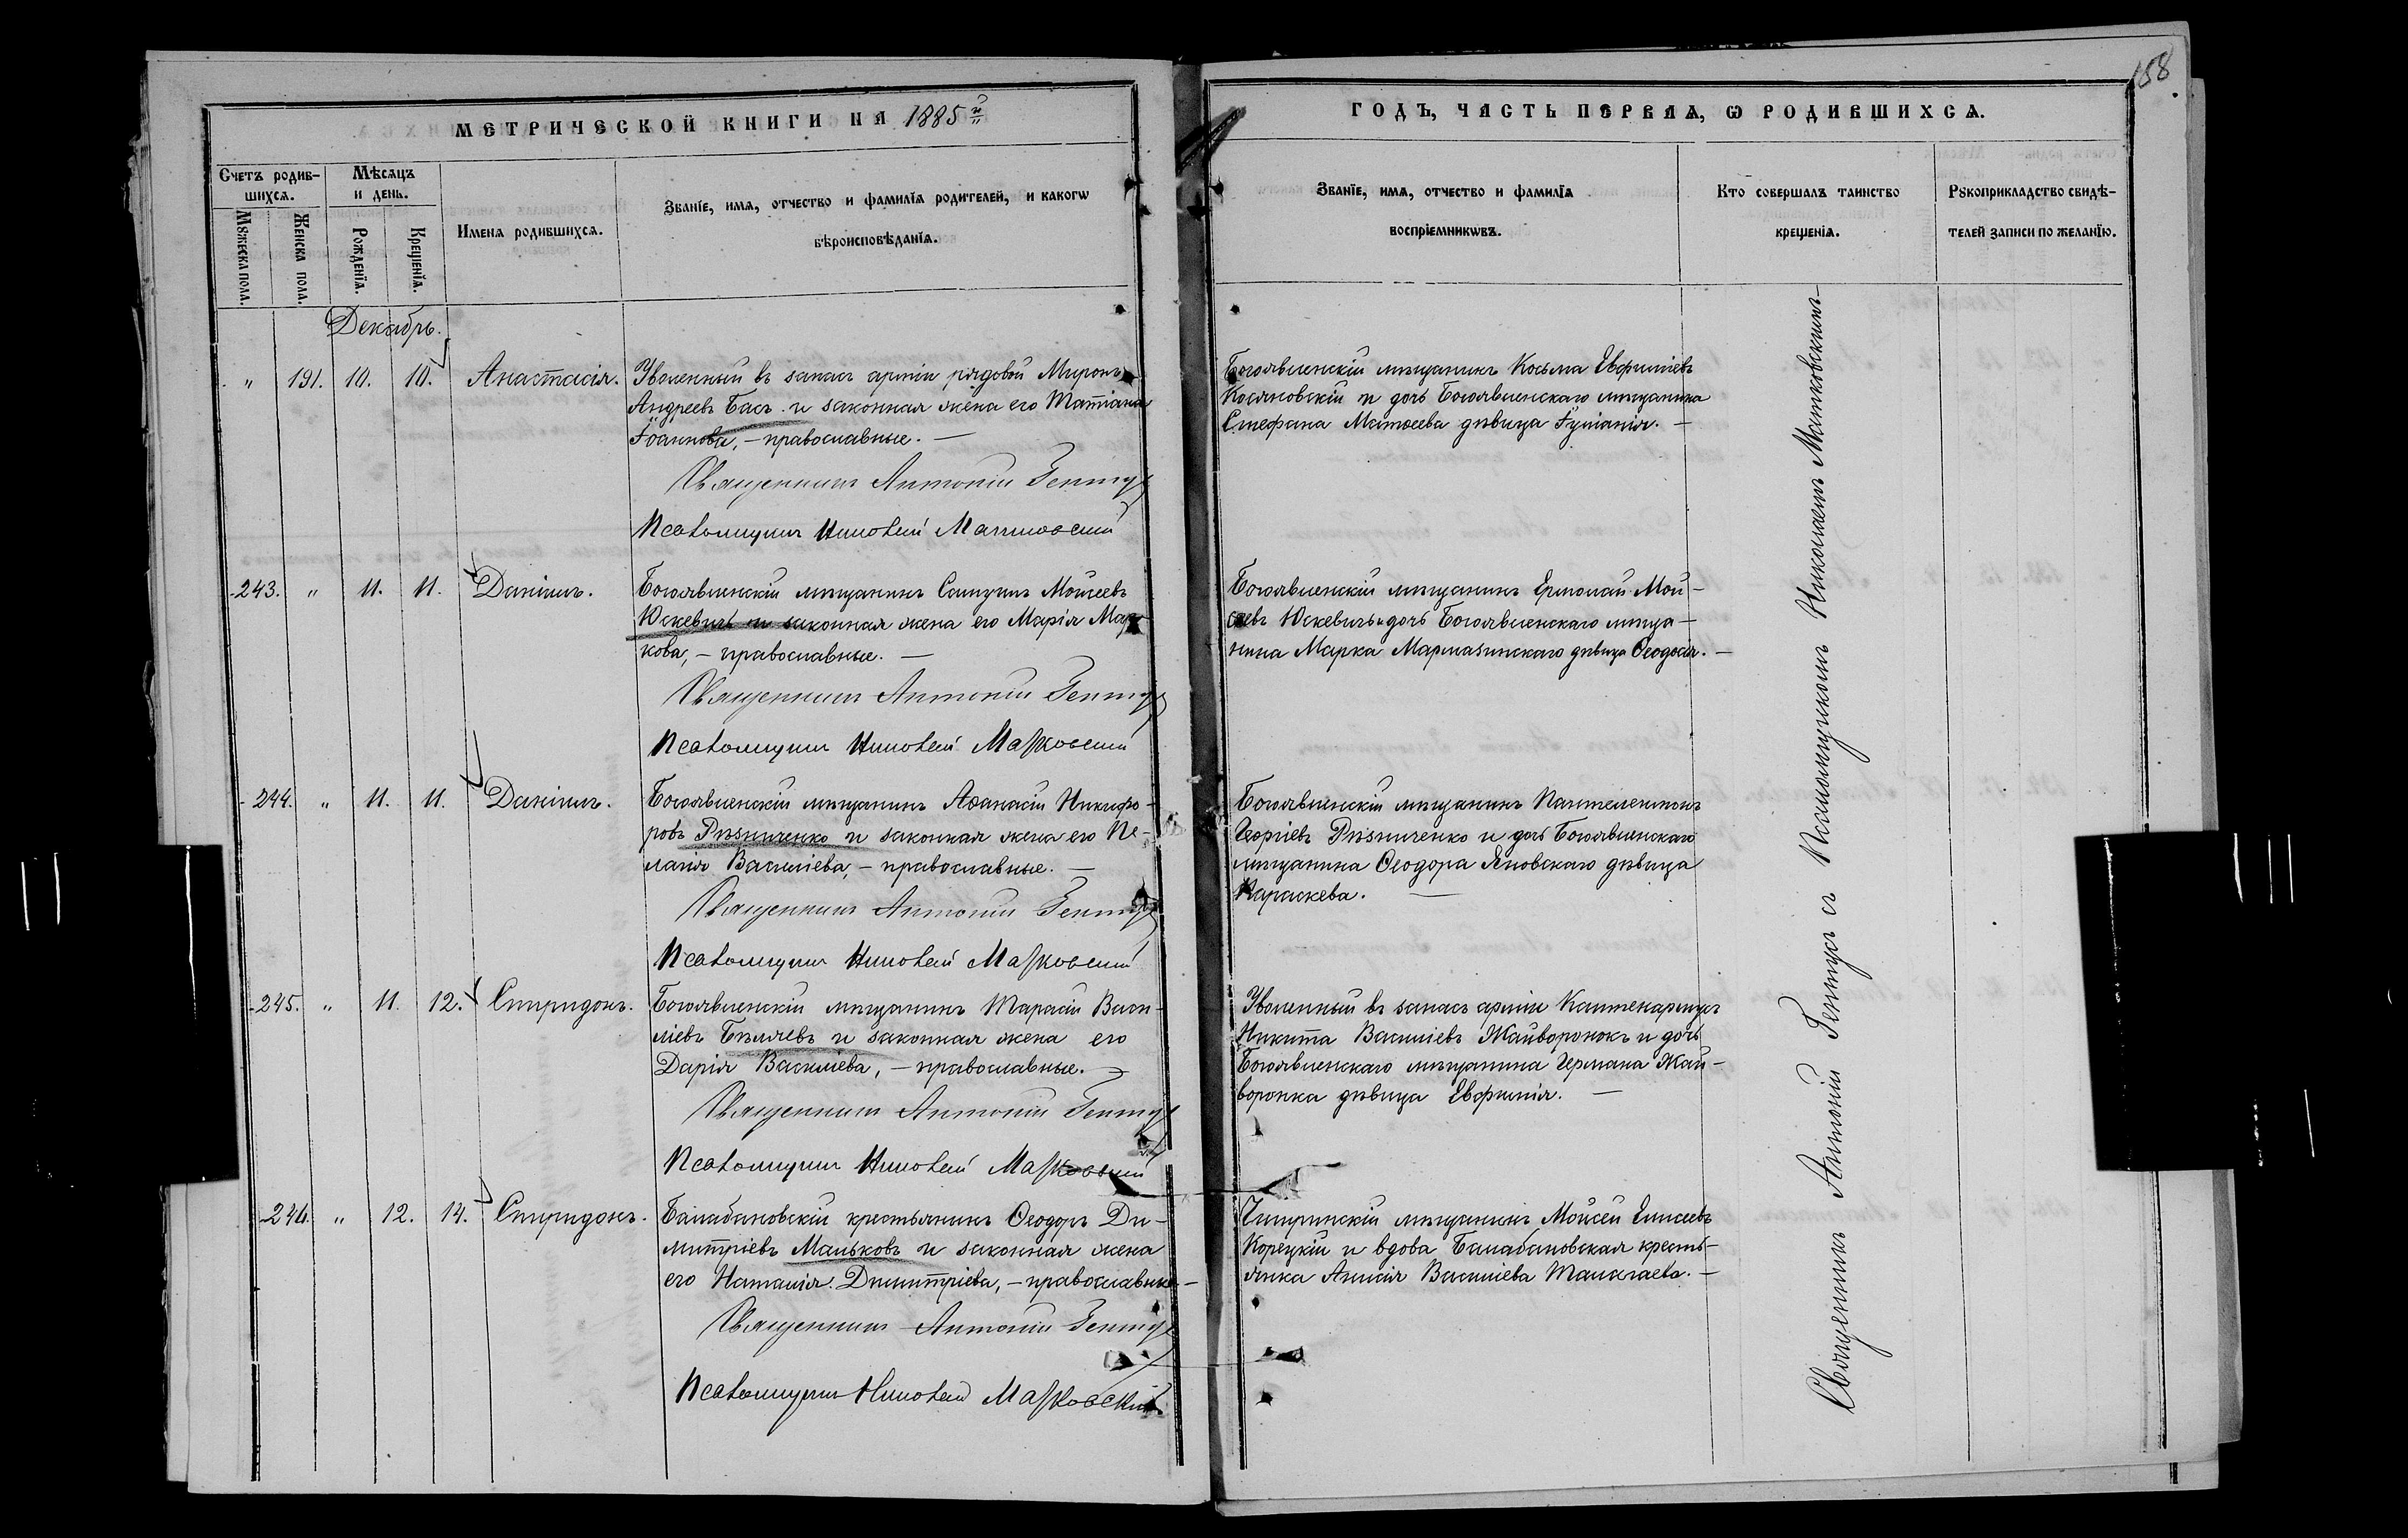 158
МЕТРИЧЕСКОЙ КНИГИ НА 1885й
ГОДЪ, ЧАСТЬ ПЕРВАЯ, Ѡ РОДИВШИХСѦ.
Счетъ родив-
шихсѧ.
Мꙋжеска пола.
Женска пола.
Мѣсѧцъ
и день.
Рожденїѧ.
Крещенїѧ.
Имена родившихсѧ.
Званїе, имѧ, отчество и фамилїѧ родителей, и какогѡ
вѣроисповѣданїѧ.
Званїе, имѧ, отчество и фамилїѧ
воспрїемникѡвъ.
Кто совершалъ таинство
крещенїѧ.
Рꙋкоприкладство свидѣ-
телей записи по желанїю.
Декабрь.
" 191. 10. 10. Анастасія.
Уволенный въ запасъ арміи рядовой Миронъ
Андреевъ Басъ и законная жена его Татіана
Іоаннова, – православные. –
Священникъ Антоній
Псаломщикъ
Богоявленскій мѣщанинъ Косьма Евфиміевъ
Косяновскій и дочь Богоявленскаго мѣщанина
Стефана Матѳеева дѣвица Іуліанія. –
243. " 11. 11. Даніилъ.
Богоявленскій мѣщанинъ Самуилъ Мойсеевъ
Юскевичъ и законная жена его Марія Мар-
кова, – православные. –
Священникъ Антоній
Псаломщикъ
Богоявленскій мѣщанинъ Ермолай Мой-
сеевъ Юскевичъ и дочь Богоявленскаго мѣща-
нина Марка Мармазинскаго дѣвица Ѳеодосія. –
244. " 11. 11. Даніилъ.
Богоявленскій мѣщанинъ Аѳанасій Никифо-
ровъ Рѣзниченко и законная жена его Пе-
лагія Василіева, – православные. –
Священникъ Антоній
Псаломщикъ
Богоявленскій мѣщанинъ Пантелеимонъ
Георгіевъ Рѣзниченко и дочь Богоявленскаго
мѣщанина Ѳеодора Яновскаго дѣвица
Параскева. –
245. " 11. 12. Спиридонъ.
Богоявленскій мѣщанинъ Тарасій Васи-
ліевъ Бѣляевъ и законная жена его
Дарія Василіева, – православные. –
Священникъ Антоній
Псаломщикъ
Уволенный въ запасъ арміи Каптенармусъ
Никита Василіевъ Жайворонокъ и дочь
Богоявленскаго мѣщанина Германа Жай-
воронка дѣвица Евфимія. –
246. " 12. 14. Спиридонъ.
Балабановскій крестьянинъ Ѳеодоръ Ди-
митріевъ Мальковъ и законная жена
его Наталія Димитріева, – православные –
Священникъ Антоній
Псаломщикъ
мѣщанинъ Мойсей Елисеевъ
Корецкій и вдова Балабановская кресть-
янка Анисія Василіева
Священникъ Антоній съ Псаломщикомъ Николаемъ